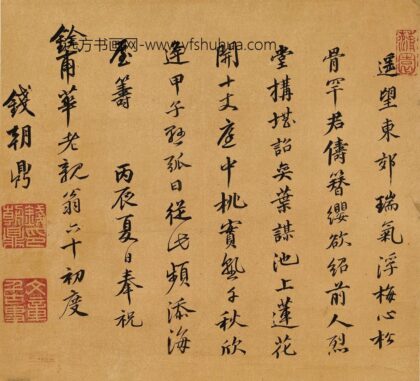 遥望東郊瑞氣浮梅心松
骨罕君儔簪纓欲紹前人烈
堂搆堪詒奕葉謀池上蓮花
開十丈庭中桃實熟千秋欣
逢甲子懸弧日從此頻添海
屋籌 丙辰夏日奉祝
甫華老親翁六十初度
錢朝鼎
方书画网-www.yfshuhua.com